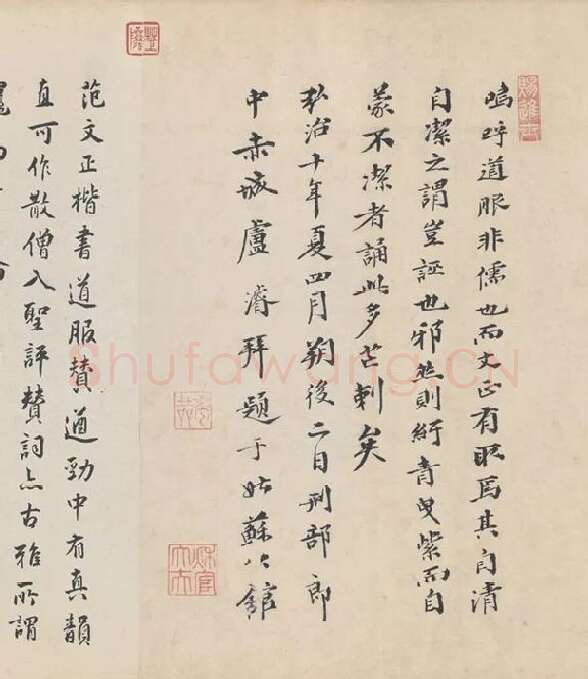 嗚呼道服非儒也而文正有取焉其自清
自潔之謂豈誣也邪然則紆青曳紫而自
蒙不潔者誦此多芒刺矣
弘治十年夏四月朔後二日刑部郎
中赤城盧濬拜題于姑蘇公館
范文正楷書道服贊遒勁中有真韻
直可作散僧入聖評贊詞亦古雅所謂
Shufawang.CN